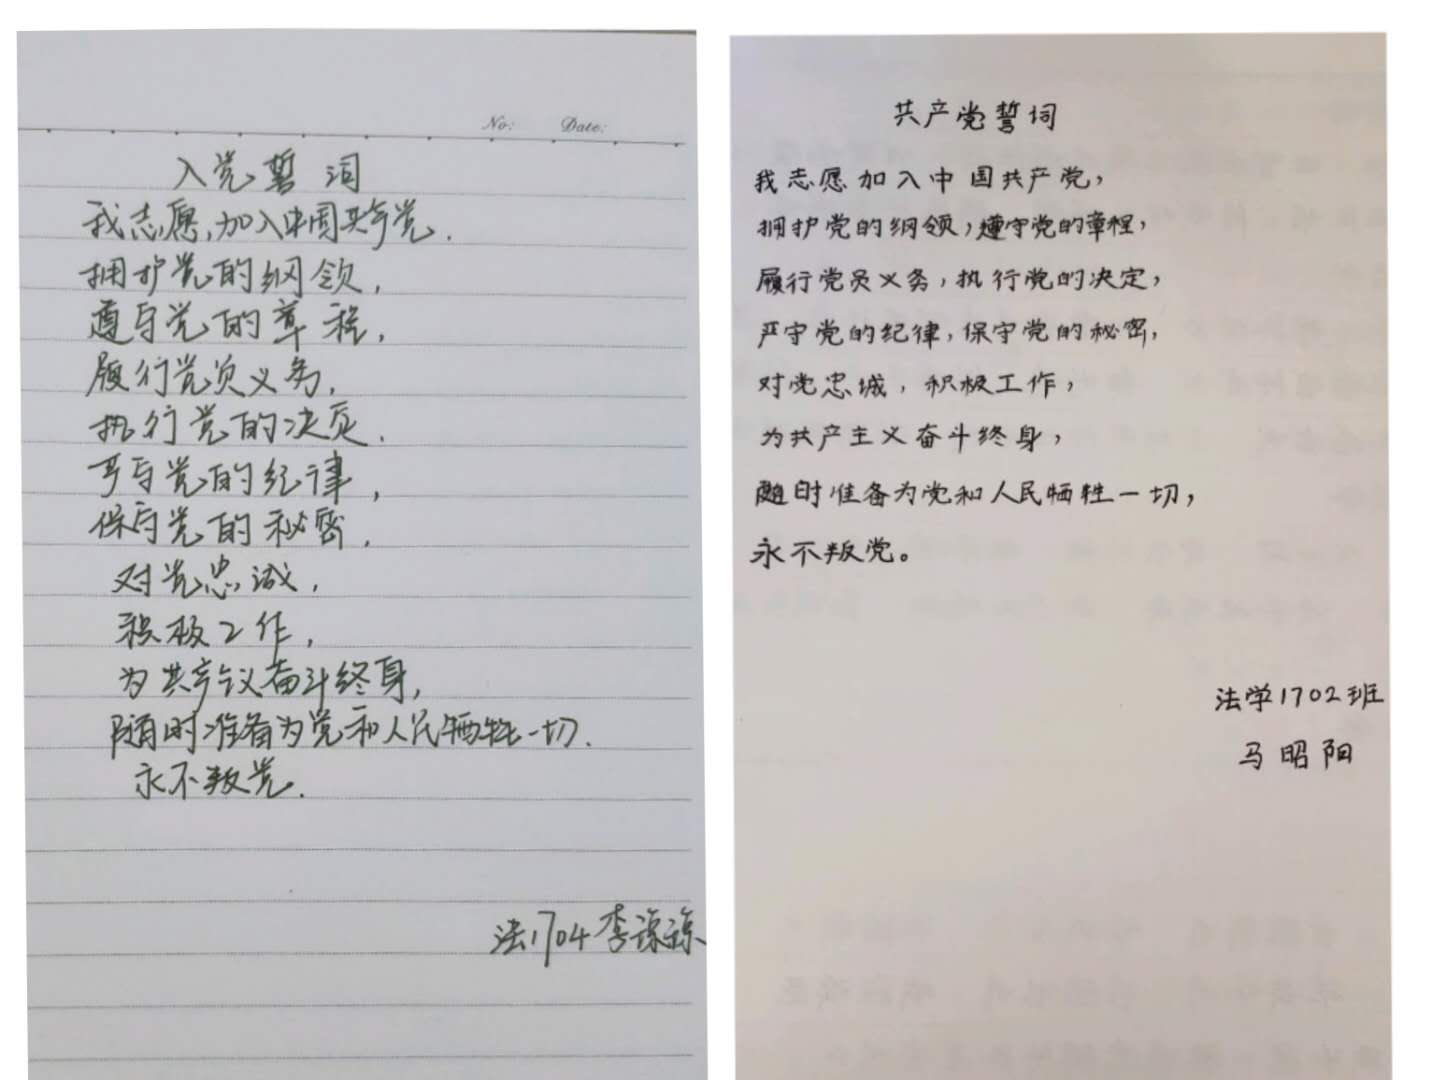 No: Date:
入党誓词
我志愿,加入中国共产党.
拥护党的纲领,
遵守党的章程,
履行党员义务,
执行党的决定.
守党的纪律,
保守党的秘密,
对党忠诚,
积极工作,
为共产主义奋斗终身,
随时准备为党和人民牺牲一切.
永不叛党.
法1704 李
共产党誓词
我志愿加入中国共产党,
拥护党的纲领,遵守党的章程,
履行党员义务,执行党的决定,
严守党的纪律,保守党的秘密,
对党忠诚,积极工作,
为共产主义奋斗终身,
随时准备为党和人民牺牲一切,
永不叛党。
法学1702班
马昭阳